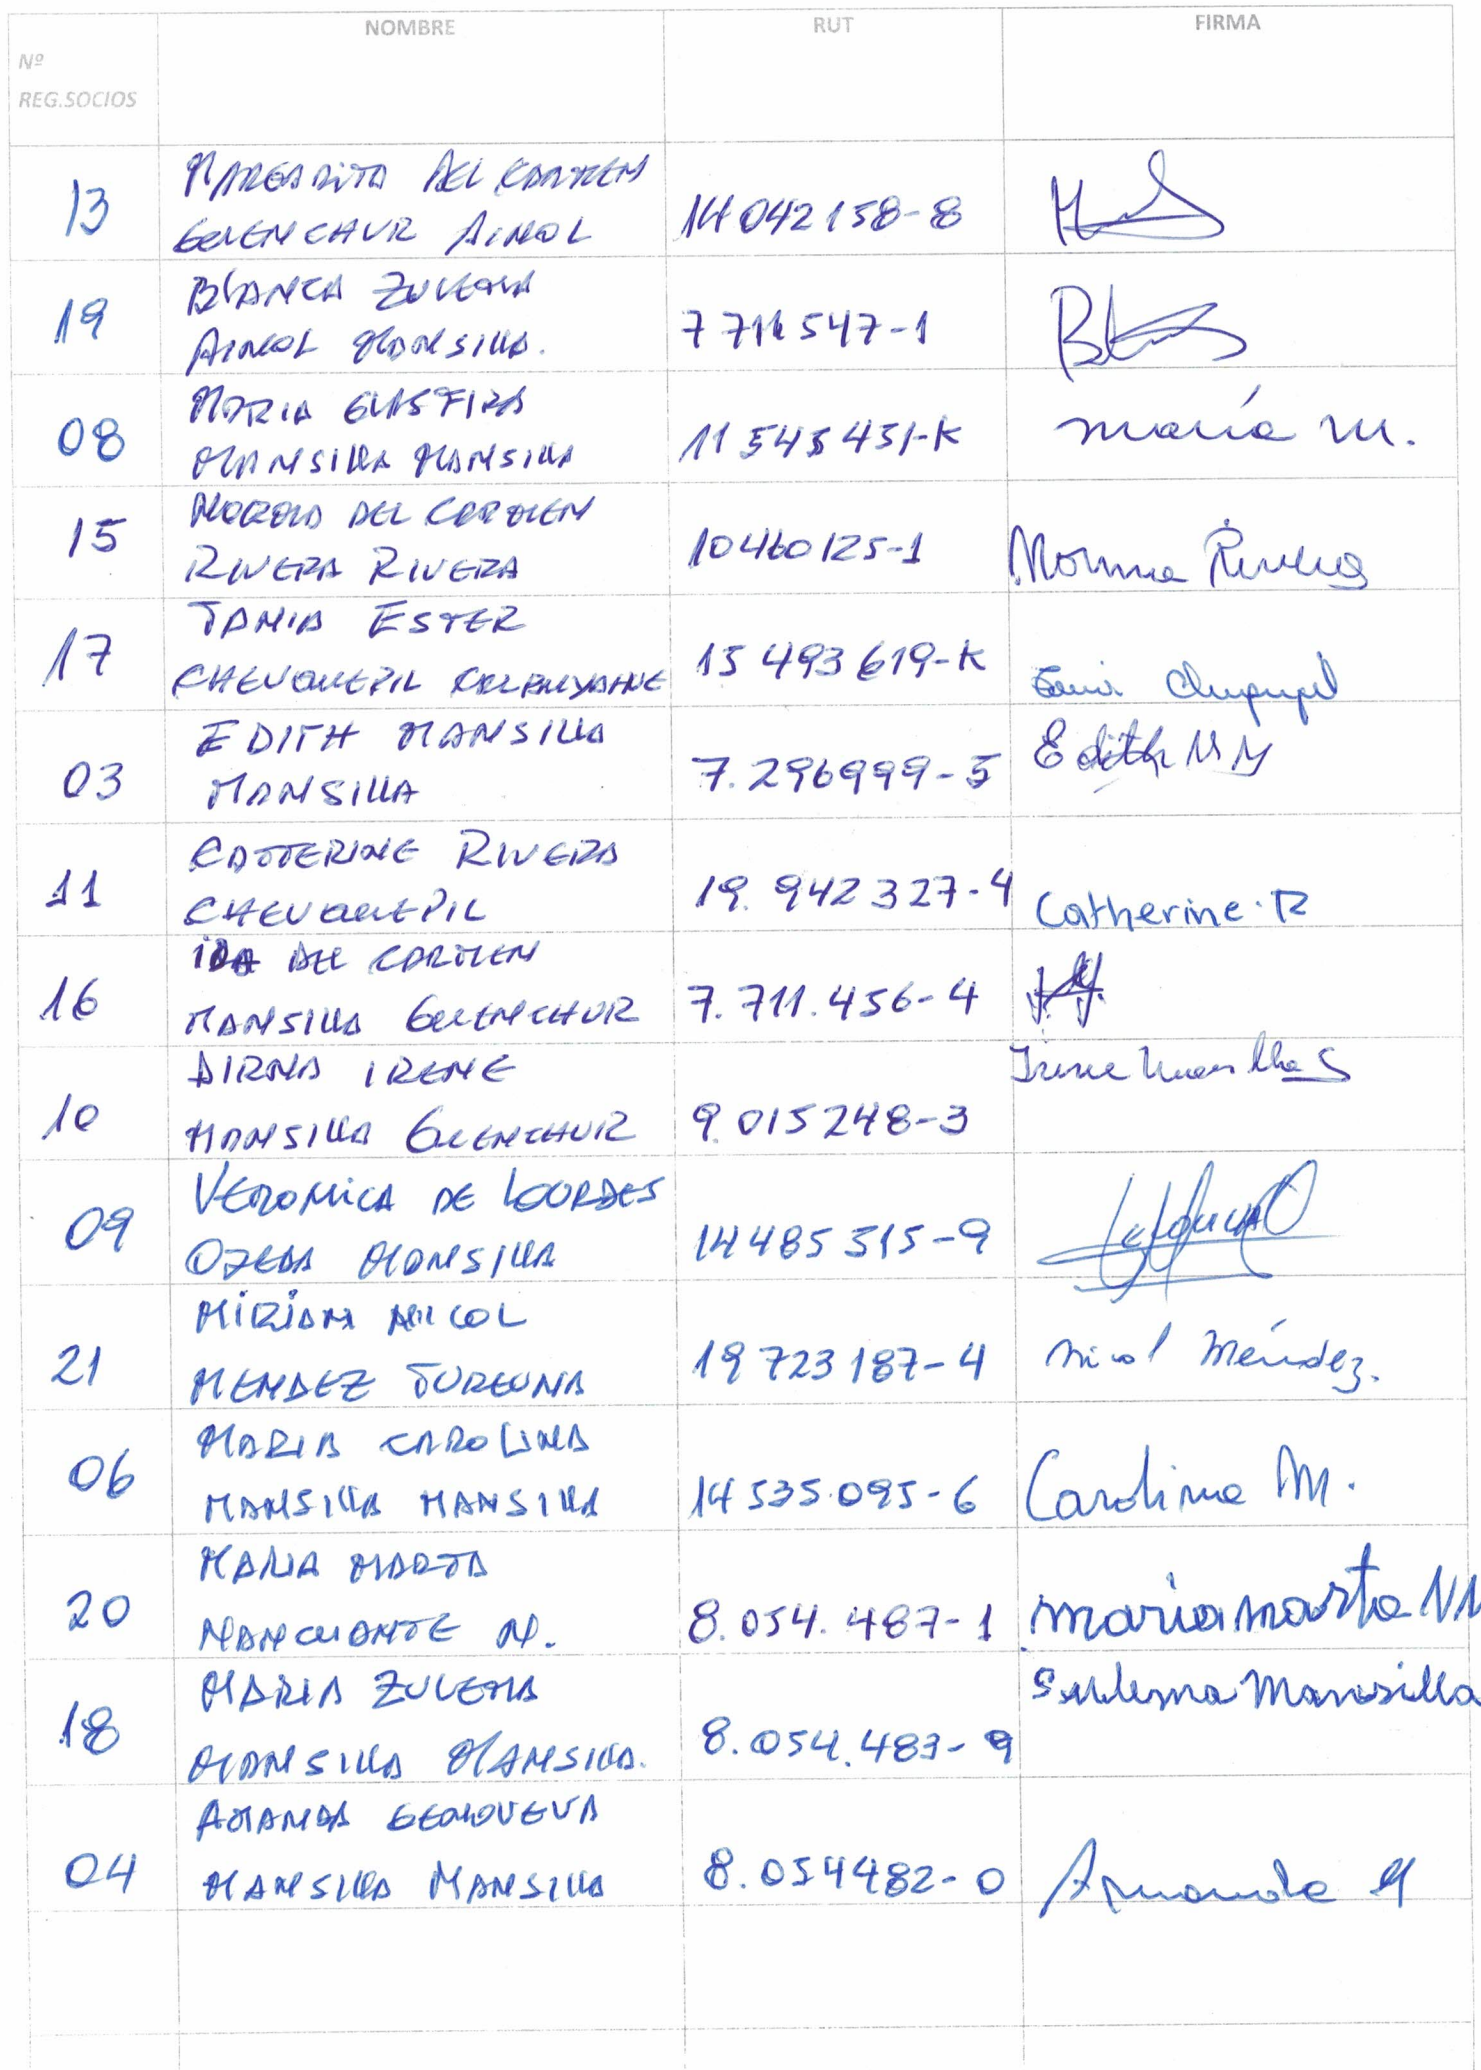 NOMBRE RUT FIRMA
Nº
REG.SOCIOS
13 MARGARITA DEL CARMEN
GUENCHUR AINOL 14042158-8
19 BLANCA ZULEMA
AINOL MANSILLA. 7711547-1
08 MARIA GLASFIRA
MANSILLA MANSILLA 11543451-K maría M.
15 NORMA DEL CARMEN
RIVERA RIVERA 10460125-1 Norma Rivera
17 TANIA ESTER
CHEUQUEPIL 15493619-K
03 EDITH MANSILLA
MANSILLA 7.296999-5 Edith M M
11 CATTERINE RIVERA
CHEUQUEPIL 19.942327-4 Catherine.R
16 IDA DEL CARMEN
MANSILLA GUENCHUR 7.711.456-4
10 DIRMA IRENE
MANSILLA GUENCHUR 9.015248-3 Irene Mansilla G
09 VERONICA DE LOURDES
OJEDA MANSILLA 14485315-9
21 MIRIAM NICOL
MENDEZ TUREUNA 19723187-4 Nicol Méndez.
06 MARIA CAROLINA
MANSILLA MANSILLA 14535.095-6 Carolina M.
20 MARIA MARTA
NANCUANTE M. 8.054.487-1 maria marta NM
18 MARIA ZULEMA
MANSILLA MANSILLA. 8.054.483-9 Sulema Mansilla
04 AMANDA GENOVEVA
MANSILLA MANSILLA 8.054482-0 Amanda M